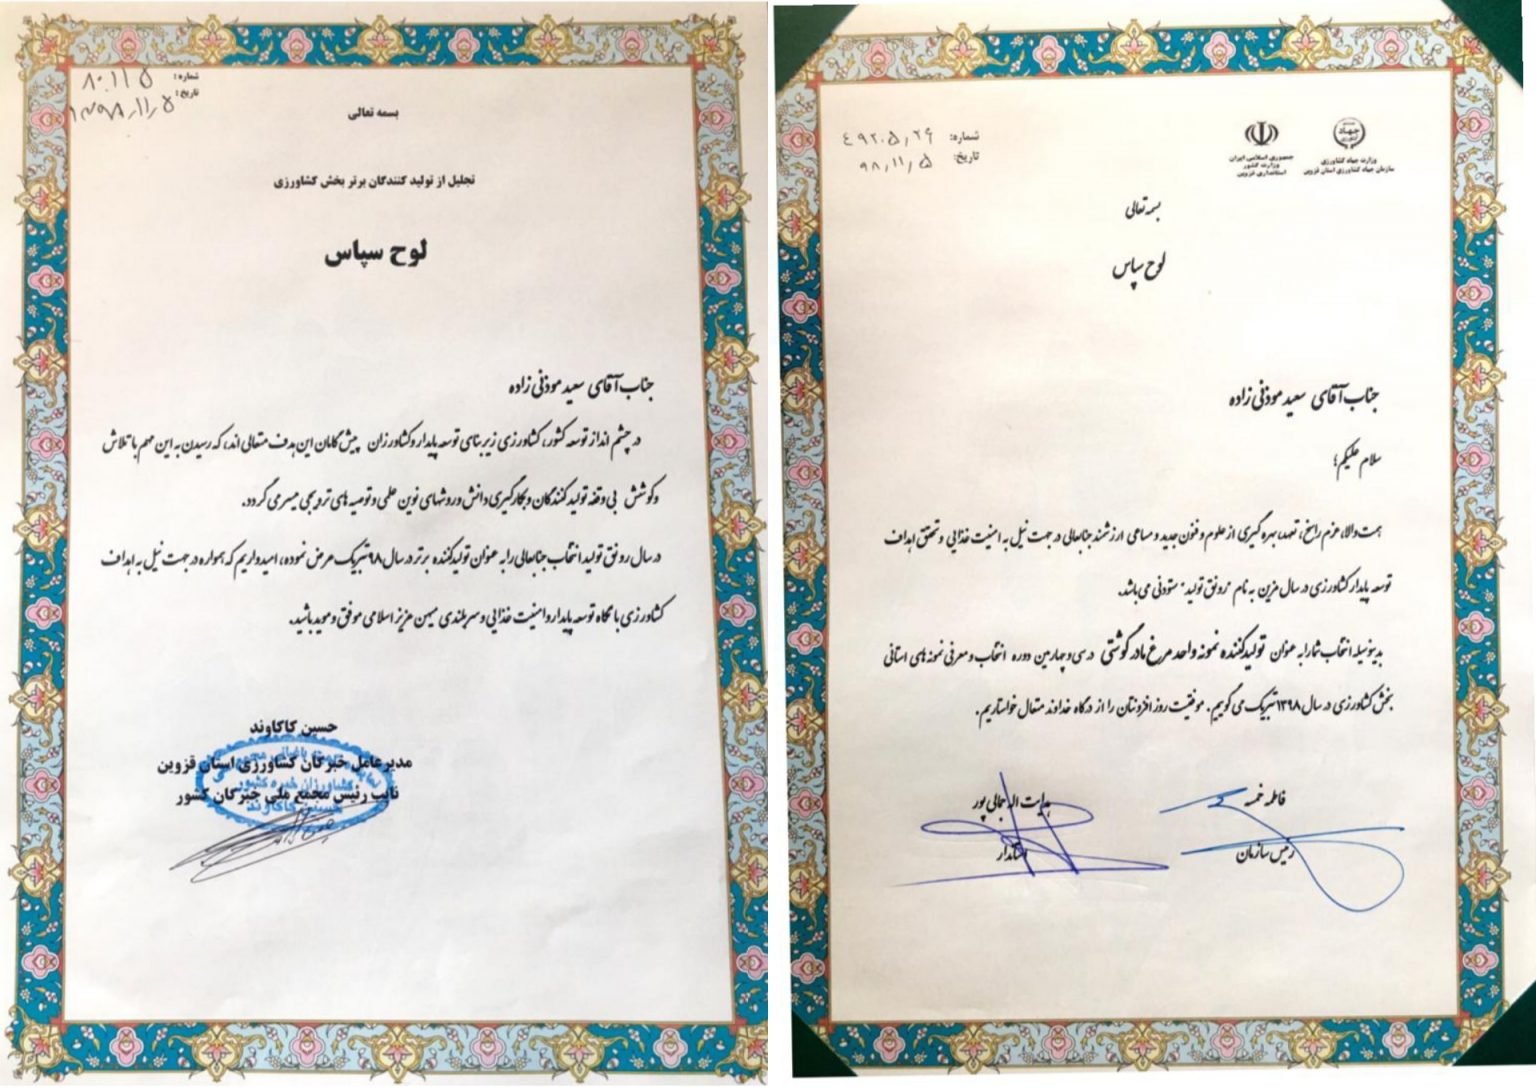 شماره: ۸۰۱۱۵
تاریخ: ۱۳۹۸,۱۱,۵
بسمه تعالی
تجلیل از تولید کنندگان برتر بخش کشاورزی
لوح سپاس
جناب آقای سعید موذنی زاده
در چشم انداز توسعه کشور، کشاورزی زیر بنای توسعه پایدار و کشاورزان پیش گامان این هدف متعالی اند، که رسیدن به این مهم با تلاش
و کوشش بی وقفه تولید کنندگان و بکارگیری دانش و روشهای نوین علمی و توصیه های ترویجی میسر می گردد.
در سال رونق تولید انتخاب جنابعالی را به عنوان تولیدکننده برتر در سال ۹۸ تبریک عرض نموده، امیدواریم که همواره در جهت نیل به اهداف
کشاورزی با نگاه توسعه پایدار و امنیت غذایی و سربلندی میهن عزیز اسلامی موفق و موید باشید.
حسین کاکاوند
مدیرعامل خبرگان کشاورزی استان قزوین
نایب رئیس مجمع ملی خبرگان کشور
کشاورزان خبره کشور
حسین کاکاوند
وزارت جهاد کشاورزی
سازمان جهاد کشاورزی استان قزوین
جمهوری اسلامی ایران
وزارت کشور
استانداری قزوین
شماره: ۴۹۲۰۵٫۲۶
تاریخ: ۹۸٫۱۱٫۵
بسمه تعالی
لوح سپاس
جناب آقای سعید موذنی زاده
سلام علیکم؛
همت والا، عزم راسخ، تعهد، بهره گیری از علوم و فنون جدید و مساعی ارزشمند جنابعالی در جهت نیل به امنیت غذایی و تحقق اهداف
توسعه پایدار کشاورزی در سال مزین به نام "رونق تولید" ستودنی می باشد.
بدینوسیله انتخاب شما را به عنوان تولیدکننده نمونه واحد مرغ مادر گوشتی در سی و چهارمین دوره انتخاب و معرفی نمونه های استانی
بخش کشاورزی در سال ۱۳۹۸ تبریک می گوییم. موفقیت روز افزونتان را از درگاه خداوند متعال خواستاریم.
فاطمه خمسه
رئیس سازمان
هدایت اله جمالی پور
استاندار